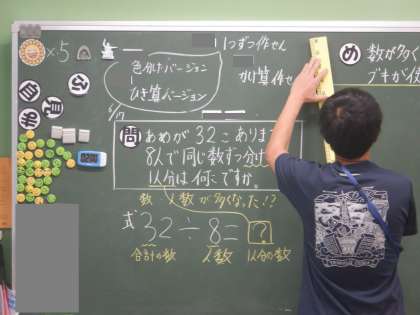 ×5
色分けバージョン
ひき算バージョン
1つずつ作せん
かけ算作せ
め 数が多く
6/17
問 あめが32こあります
8人で同じ数ずつ分け
1人分は何こですか。
数 人数が多くなった!?
式 32÷8=?
合計の数 人数 1人分の数